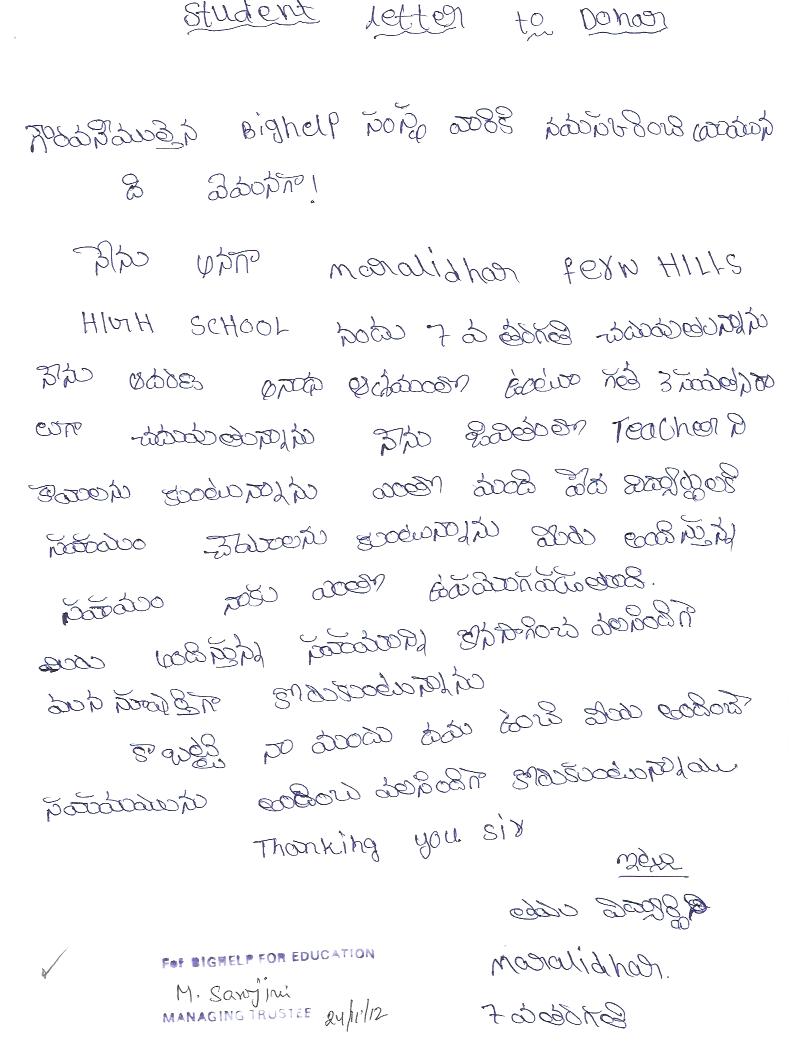 Student letter to Donar
గౌరవనీయులైన Bighelp సంస్థ వారికి నమస్కరించి వ్రాయున
ది ఏమనగా!
నేను అనగా maralidhar fern HILLS
HIGH SCHOOL నందు 7 వ తరగతి చదువుతున్నాను
నేను ఆదరణ అనాధ ఆశ్రమంలో ఉంటూ గత 3 సంవత్సరా
లుగా చదువుతున్నాను నేను జీవితంలో Teacher ని
కావాలను కుంటున్నాను ఎంతో మంది పేద విద్యార్థులకి
సహాయం చేయాలను కుంటున్నాను మీరు అందిస్తున్న
సహాయం నాకు ఎంతో ఉపయోగపడుతుంది.
మీరు అందిస్తున్న సహాయాన్ని కొనసాగించ వలసిందిగా
మన స్పూర్తిగా కోరుకుంటున్నాను
కాబట్టి నా ముందు ఉంచి మీరు అందించే
సహాయమును అందించ వలసిందిగా కోరుకుంటున్నాను
Thanking you sir
ఇట్లు
తమ విద్యార్థి
maralidhar.
7 వ తరగతి
For BIGHELP FOR EDUCATION
M. Sarojini
MANAGING TRUSTEE 24/11/12